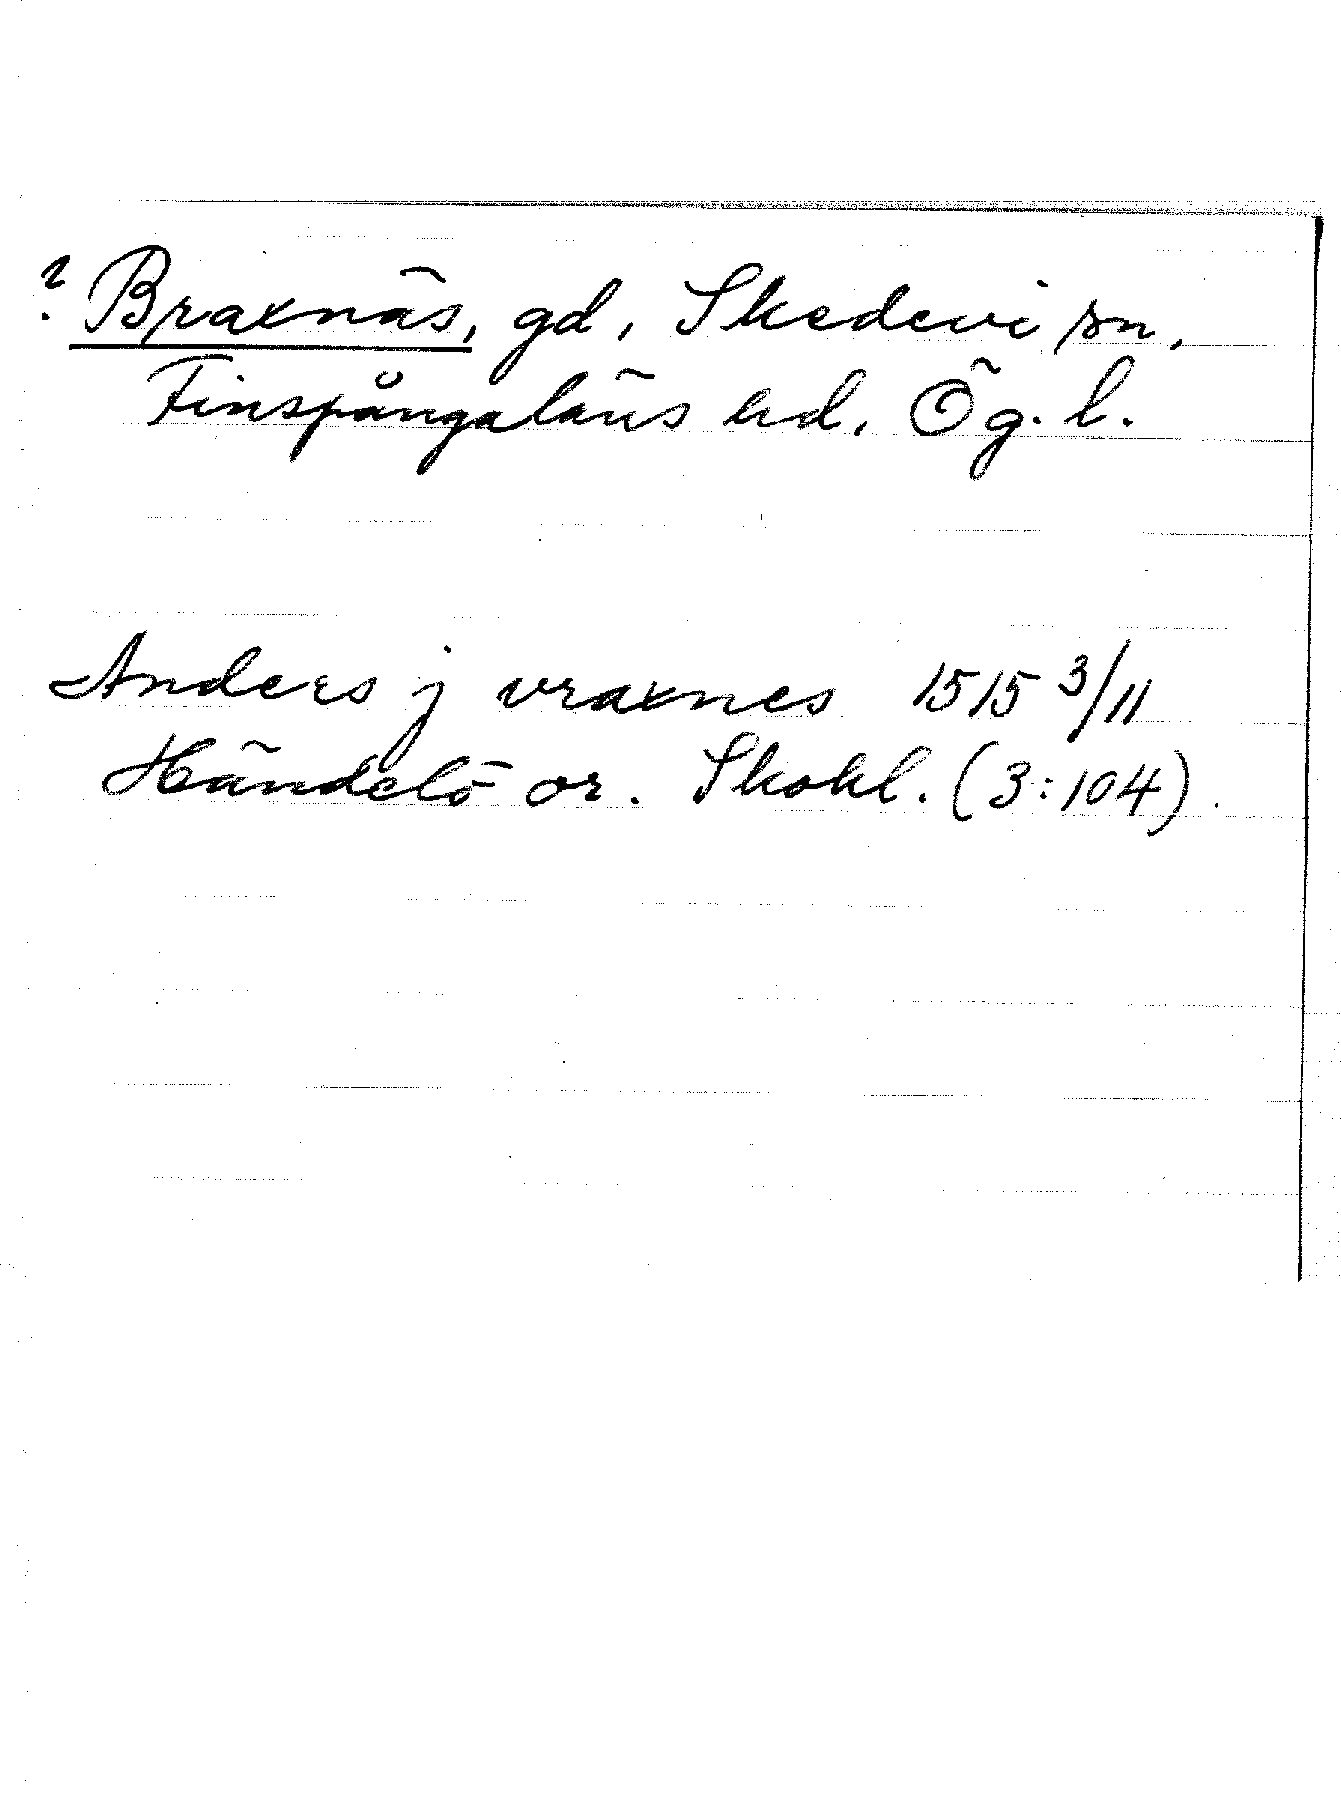 ? Braxnäs, gd, Skedevi sn,
Finspångaläns hd, Ög. l.
Anders j vraxnes 1515 3/11
Händelö or. Skokl. (3:104).